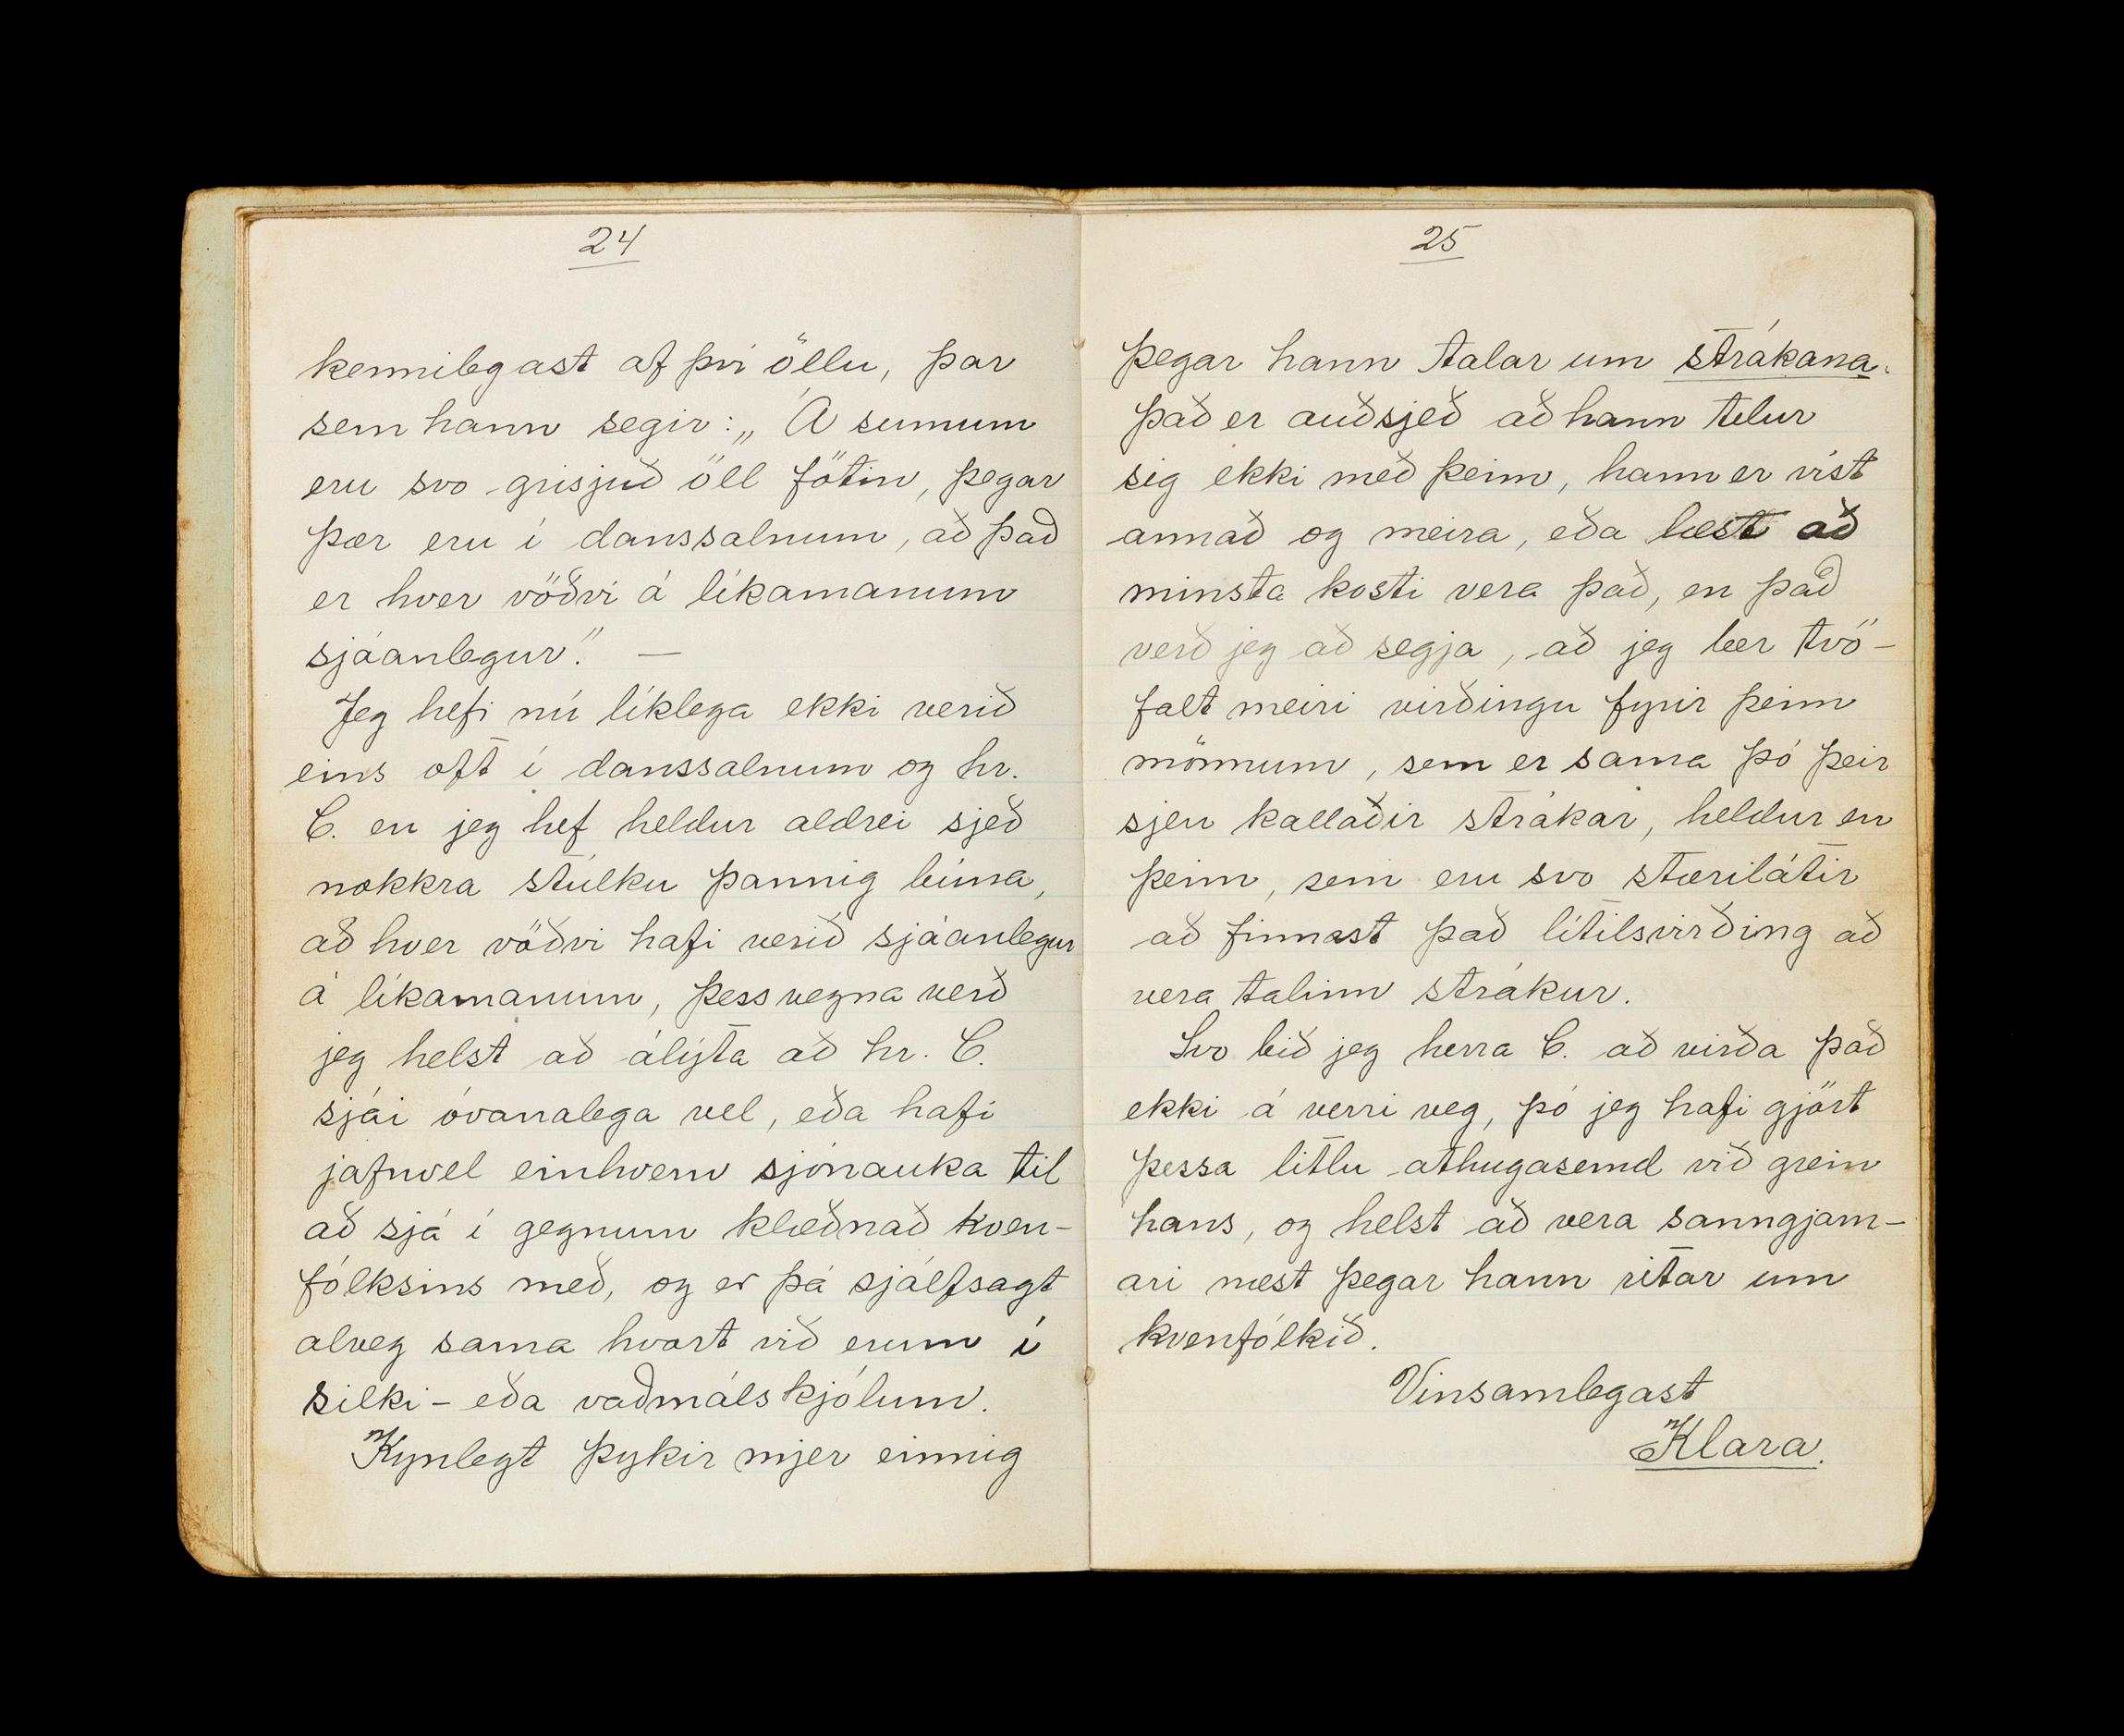 24
kennilegast af því öllu, þar
sem hann segir: „Á sumum
eru svo grisjuð öll fötin, þegar
þær eru í danssalnum, að það
er hver vöðvi á líkamanum
sjáanlegur." —
Jeg hefi nú líklega ekki verið
eins oft í danssalnum og hr.
C. en jeg hef heldur aldrei sjeð
nokkra stúlku þannig búna,
að hver vöðvi hafi verið sjáanlegur
á líkamanum, þess vegna verð
jeg helst að álýta að hr. C.
sjái óvanalega vel, eða hafi
jafnvel einhvern sjónauka til
að sjá í gegnum klæðnað kven-
fólksins með, og er þá sjálfsagt
alveg sama hvort við erum í
silki- eða vaðmálskjólum.
Kynlegt þykir mjer einnig
25
þegar hann talar um strákana.
það er auðsjeð að hann telur
sig ekki með þeim, hann er víst
annað og meira, eða læst að
minsta kosti vera það, en það
verð jeg að segja, að jeg ber tvö-
falt meiri virðingu fyrir þeim
mönnum, sem er sama þó þeir
sjeu kallaðir strákar, heldur en
þeim, sem eru svo stærilátir
að finnast það lítilsvirðing að
vera talinn strákur.
Svo bið jeg herra C. að virða það
ekki á verri veg, þó jeg hafi gjört
þessa litlu athugasemd við grein
hans, og helst að vera sanngjarn-
ari næst þegar hann ritar um
kvenfólkið.
Vinsamlegast
Klara.